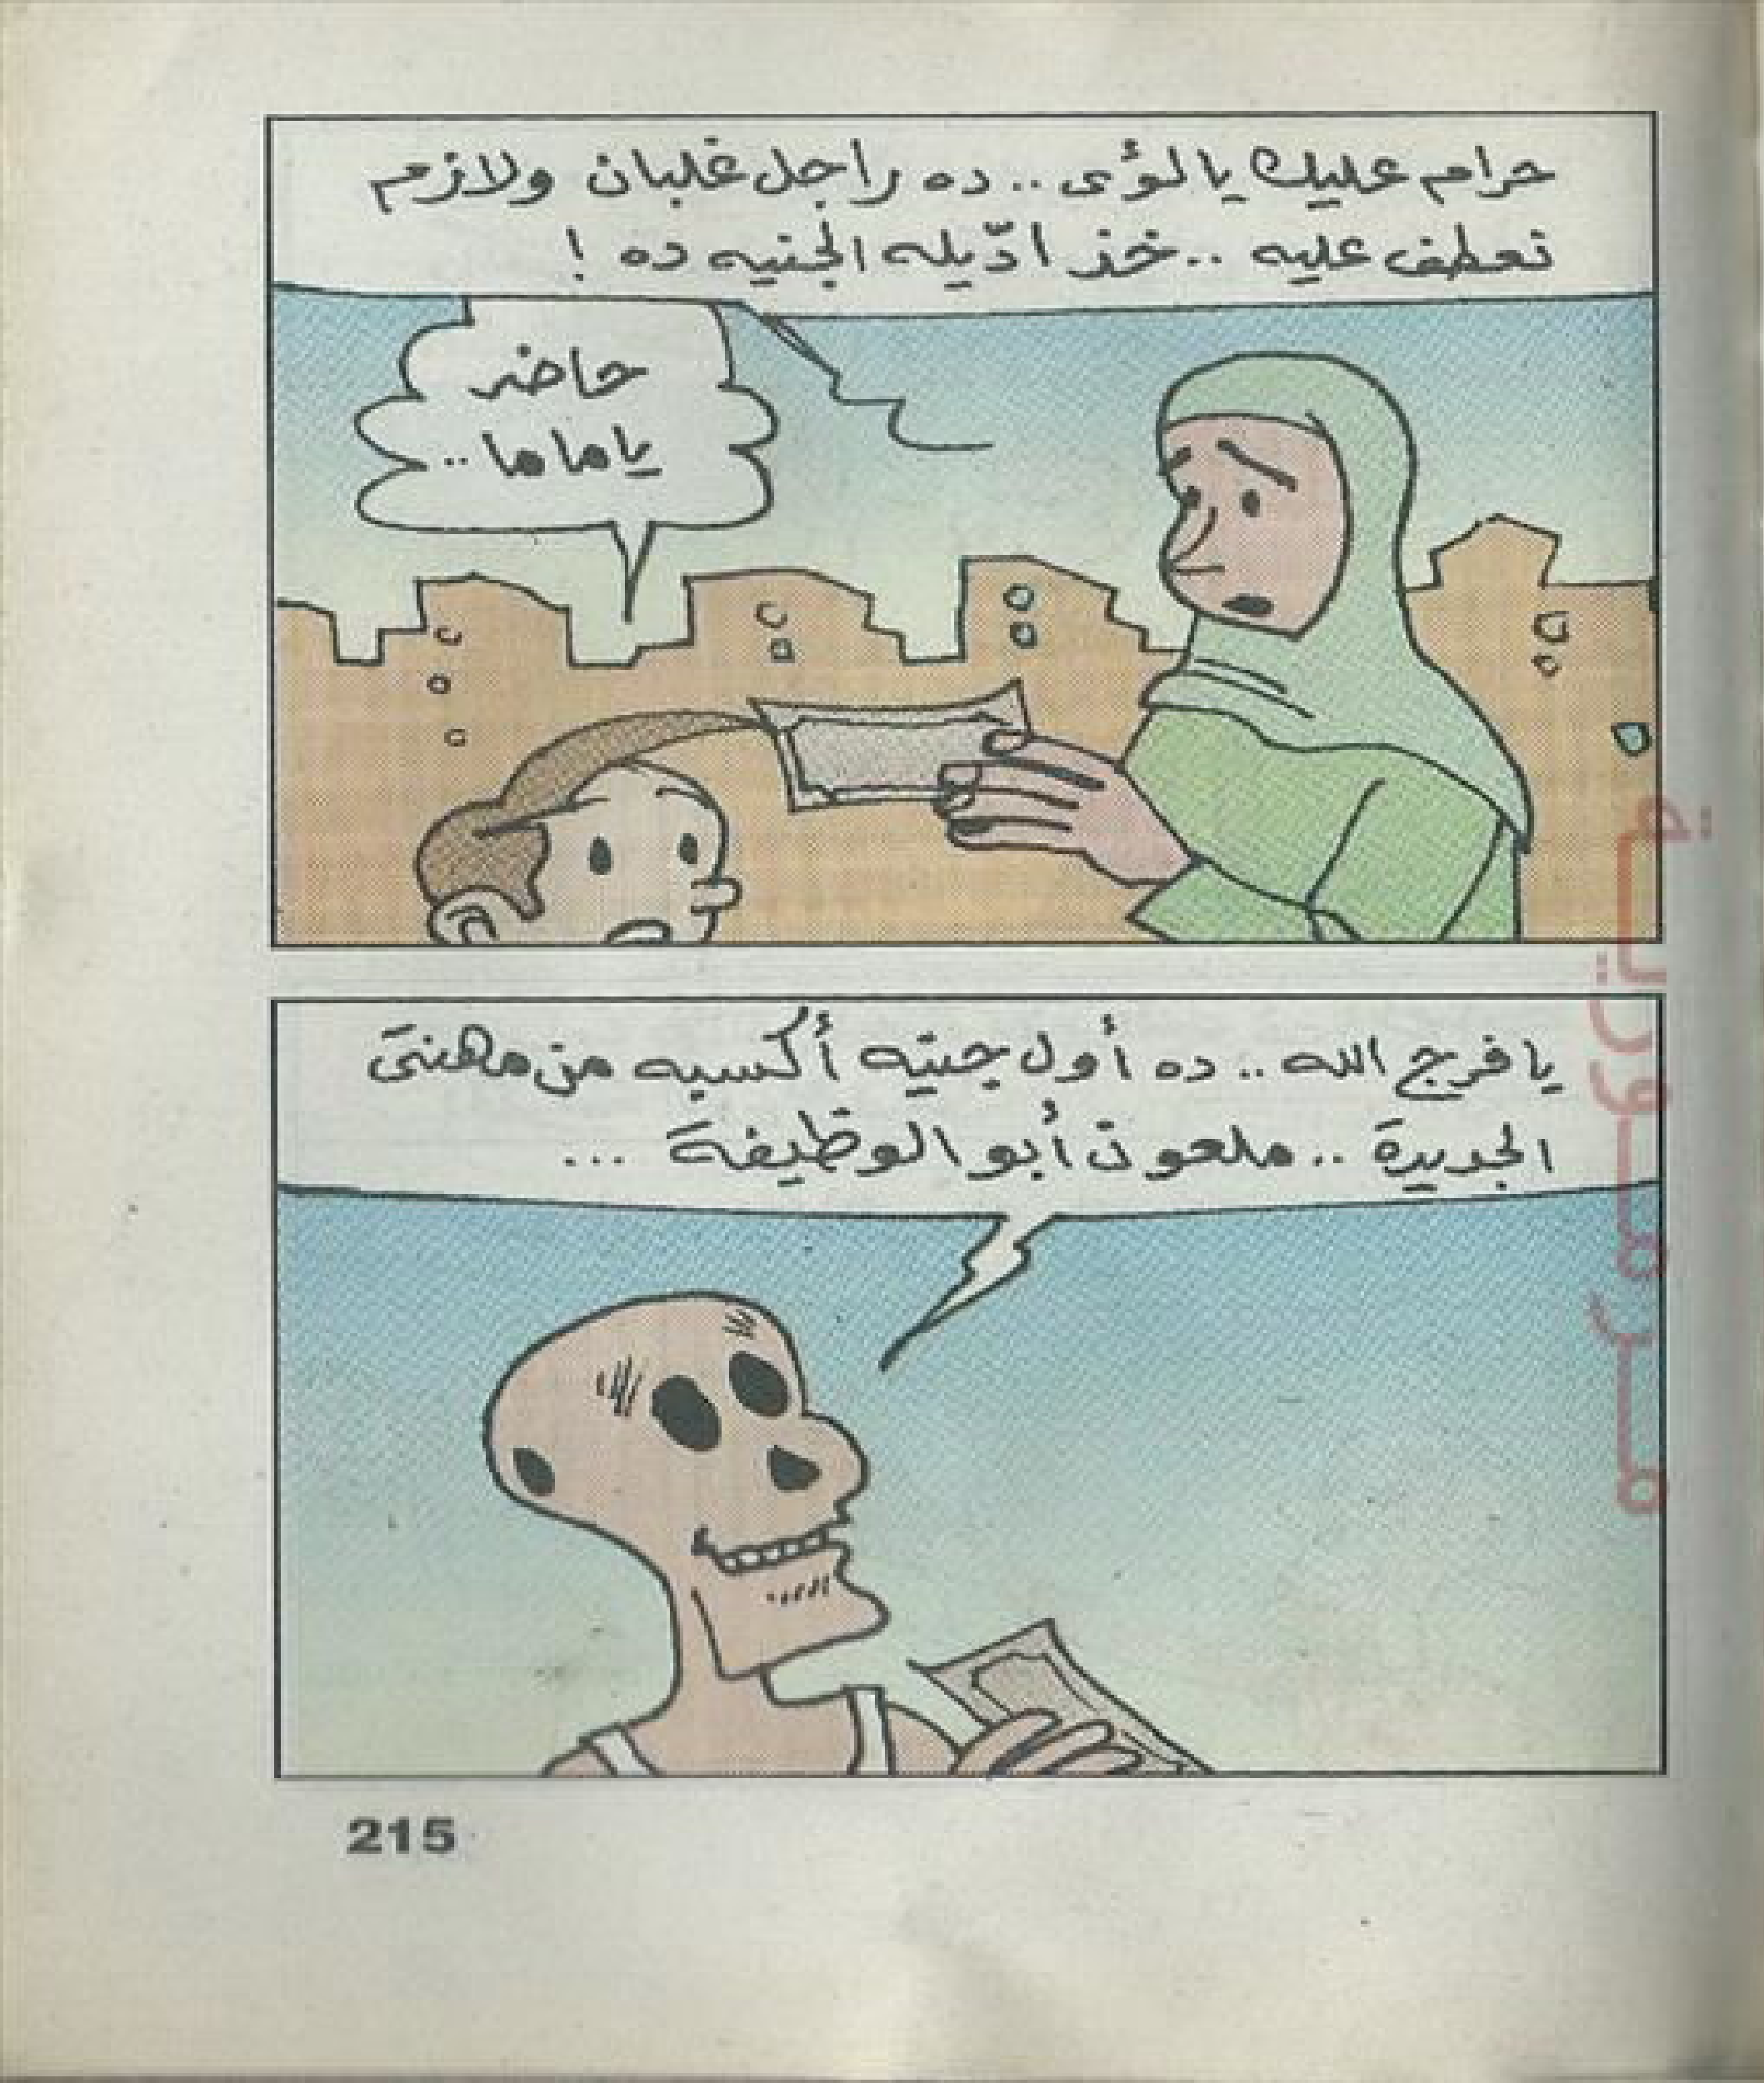 حرام عليك يا لؤى .. ده راجل غلبان ولازم
تعطف عليه .. خذ ادّيله الجنيه ده !
حاضر
يا ماما ..
يا فرج الله .. ده أول جنيه أكسبه من مهنتى
الجديدة .. ملعون أبو الوظيفة ...
215